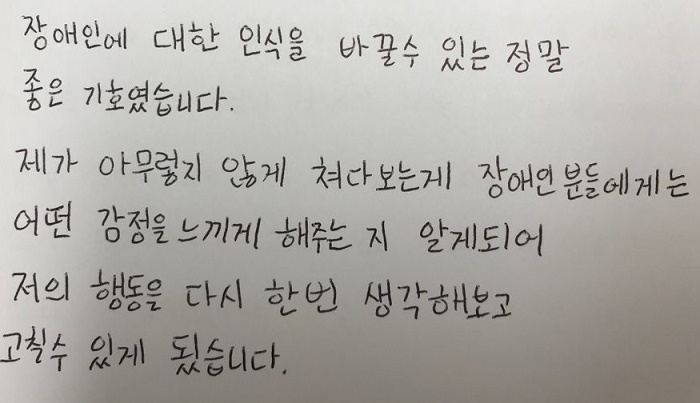 장애인에 대한 인식을 바꿀수 있는 정말
좋은 기호였습니다.
제가 아무렇지 않게 쳐다보는게 장애인분들에게는
어떤 감정을 느끼게 해주는 지 알게되어
저의 행동을 다시 한번 생각해보고
고칠수 있게 됬습니다.